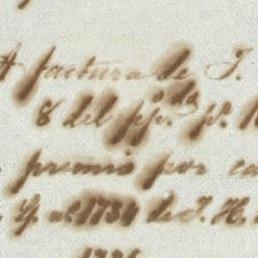 A factura de J.
8 del ppdo. pr.
premio por ca
G. nº 1734 de J. H.